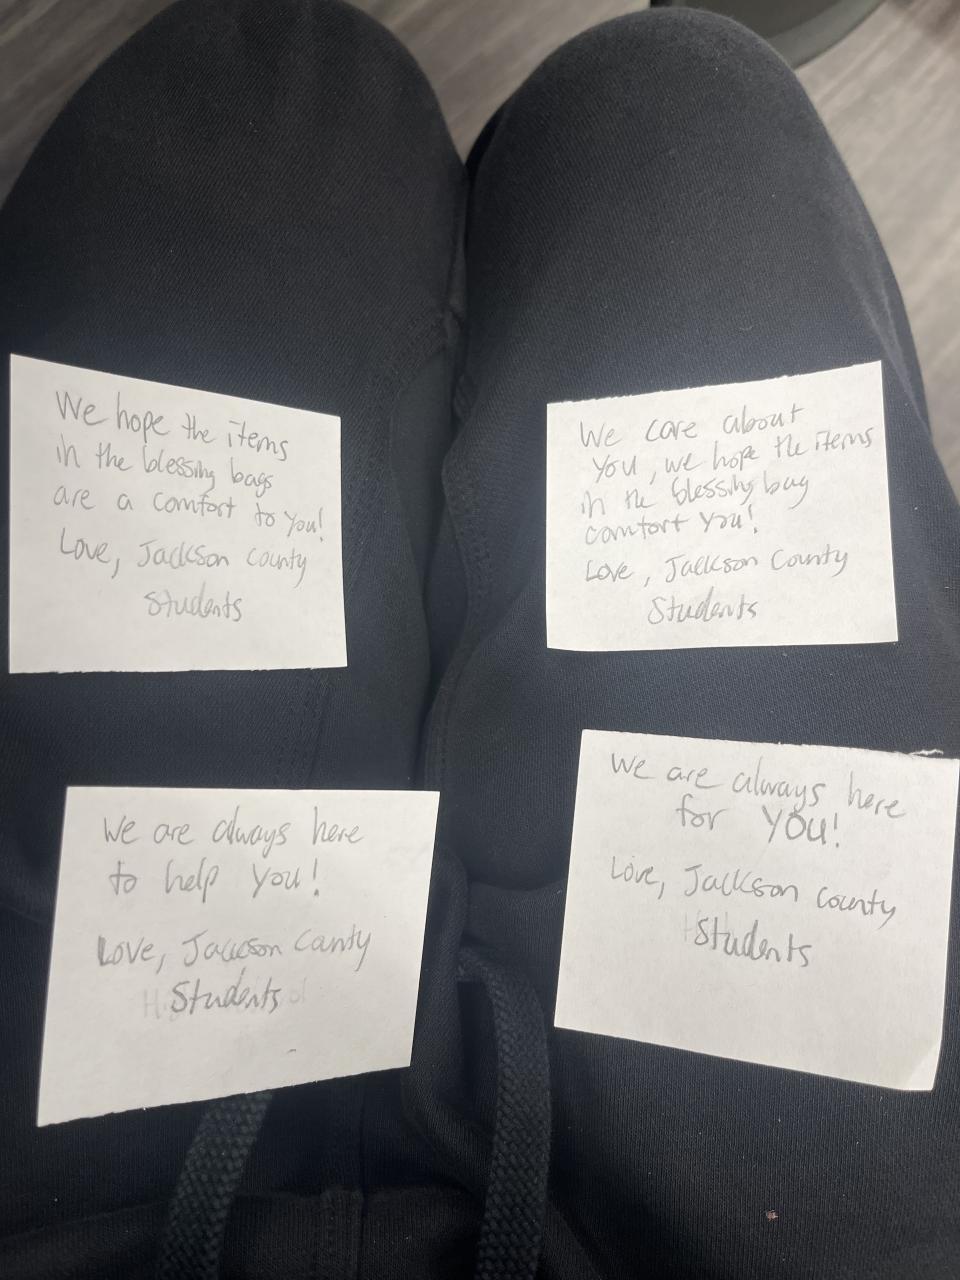 We hope the items
in the blessing bags
are a comfort to you!
Love, Jackson County
Students
We care about
you, we hope the items
in the blessing bag
comfort you!
Love, Jackson County
Students
We are always here
to help you!
Love, Jackson County
Students
We are always here
for you!
Love, Jackson county
Students